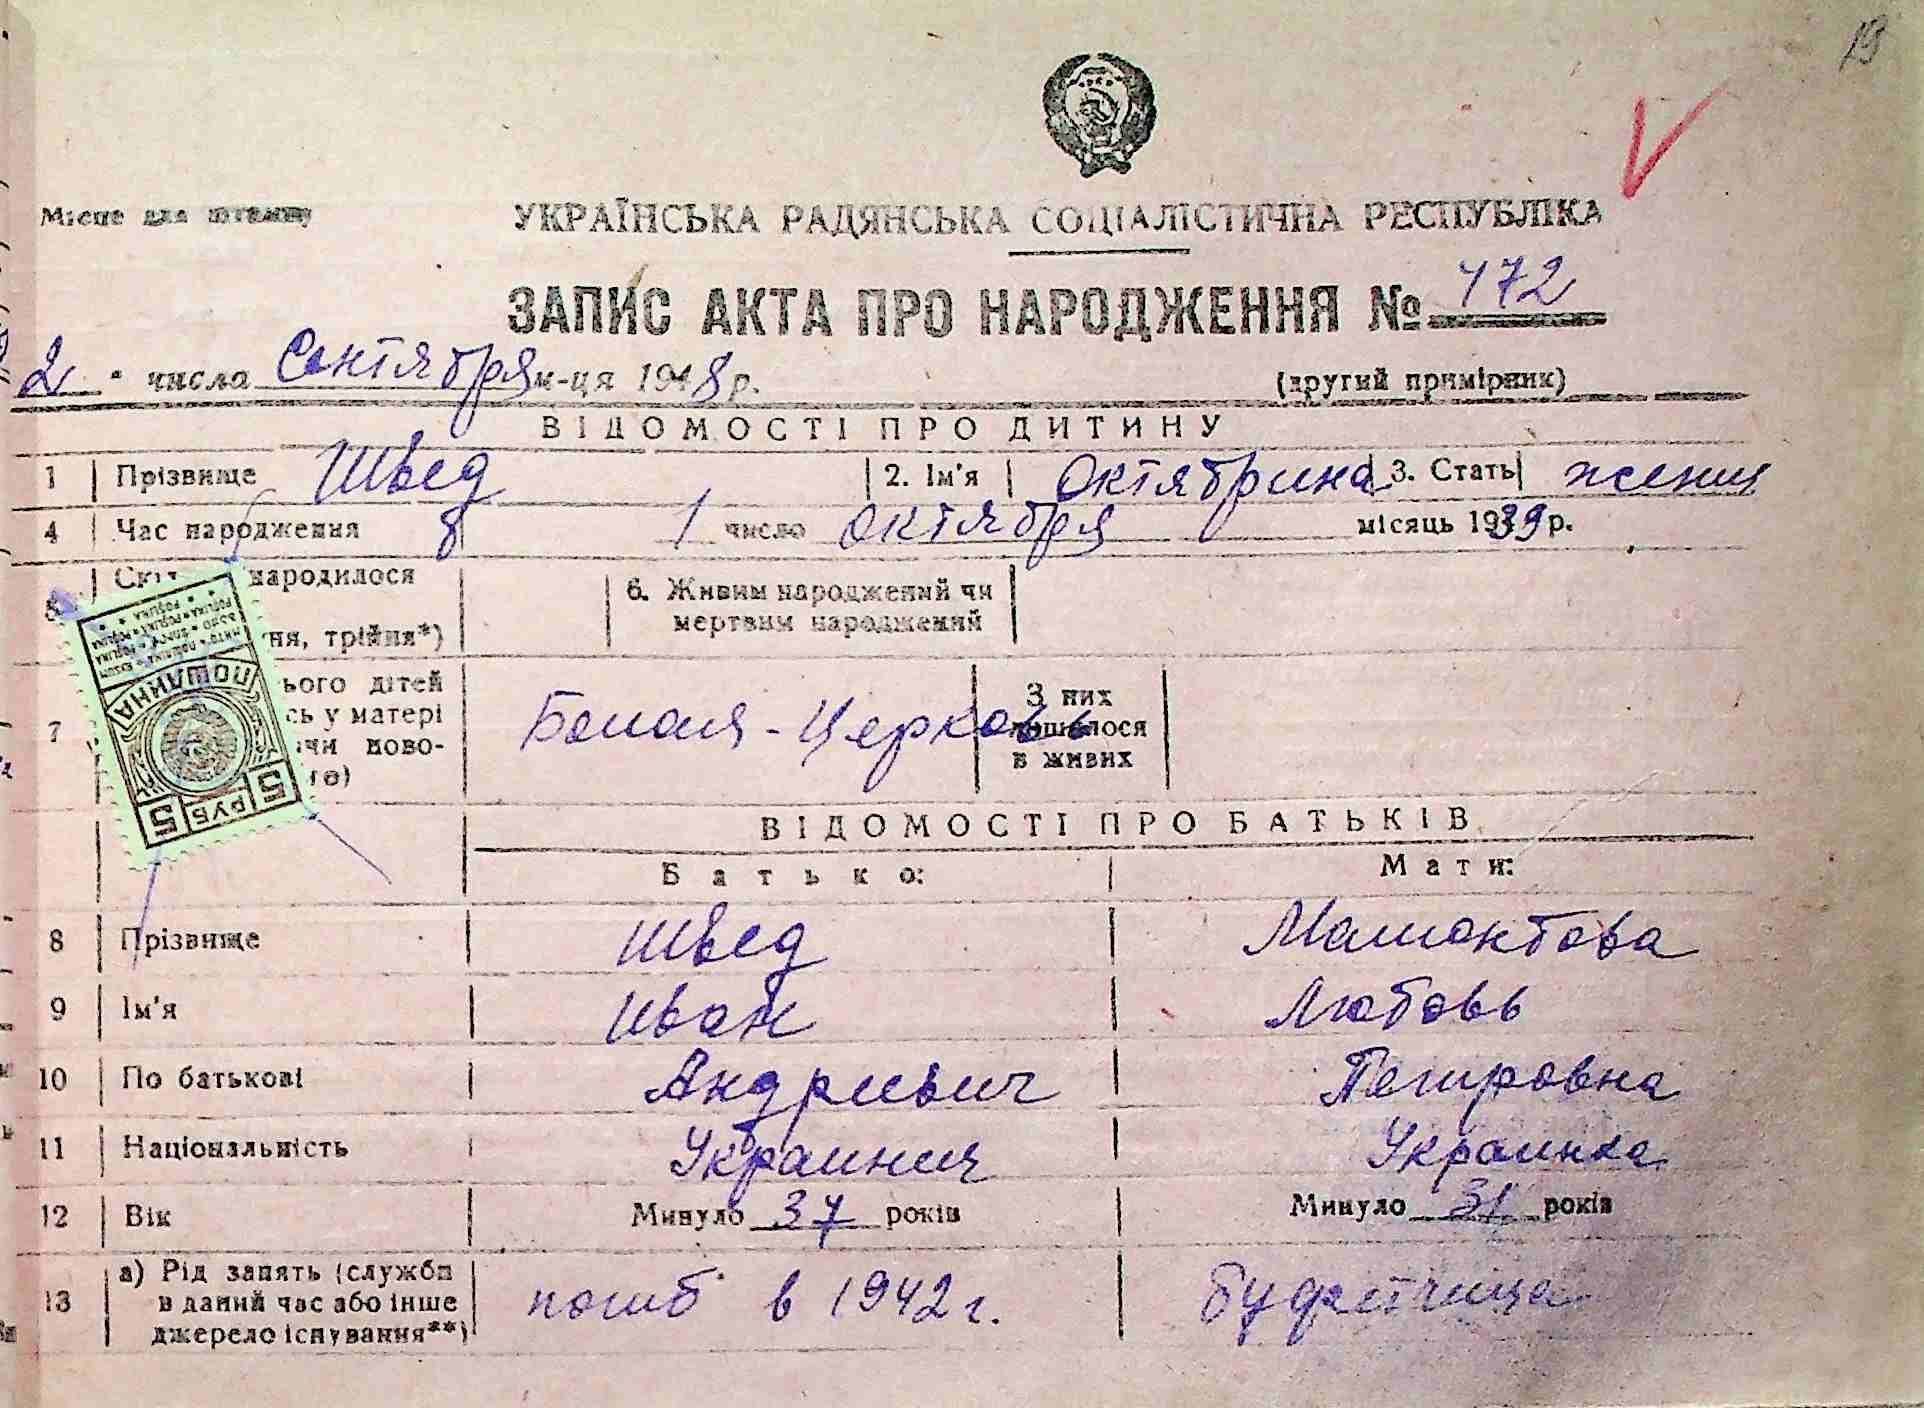 19
Місце для штампу
УКРАЇНСЬКА РАДЯНСЬКА СОЦІАЛІСТИЧНА РЕСПУБЛІКА
ЗАПИС АКТА ПРО НАРОДЖЕННЯ № 472
2 " числа Сентября м-ця 1948 р. (другий примірник)
ВІДОМОСТІ ПРО ДИТИНУ
1 Прізвище Швед 2. Ім'я Октябрина 3. Стать женщ
4 Час народження 1 число октября місяць 1939 р.
народилося 6. Живим народжений чи
5 мертвим народжений
ня, трійня*)
ього дітей З них
7 сь у матері Белая-Церковь лишилося
чи ново- в живих
го)
ВІДОМОСТІ ПРО БАТЬКІВ
Батько: Мати:
8 Прізвище Швед Мамонтова
9 Ім'я Иван Любовь
10 По батькові Андриевич Петровна
11 Національність Украинец Украинка
12 Вік Минуло 37 років Минуло 31 років
а) Рід занять (служби
13 в даний час або інше погиб в 1942 г. буфетчица
джерело існування**)
ПОШЛИНА
5 РУБ 5